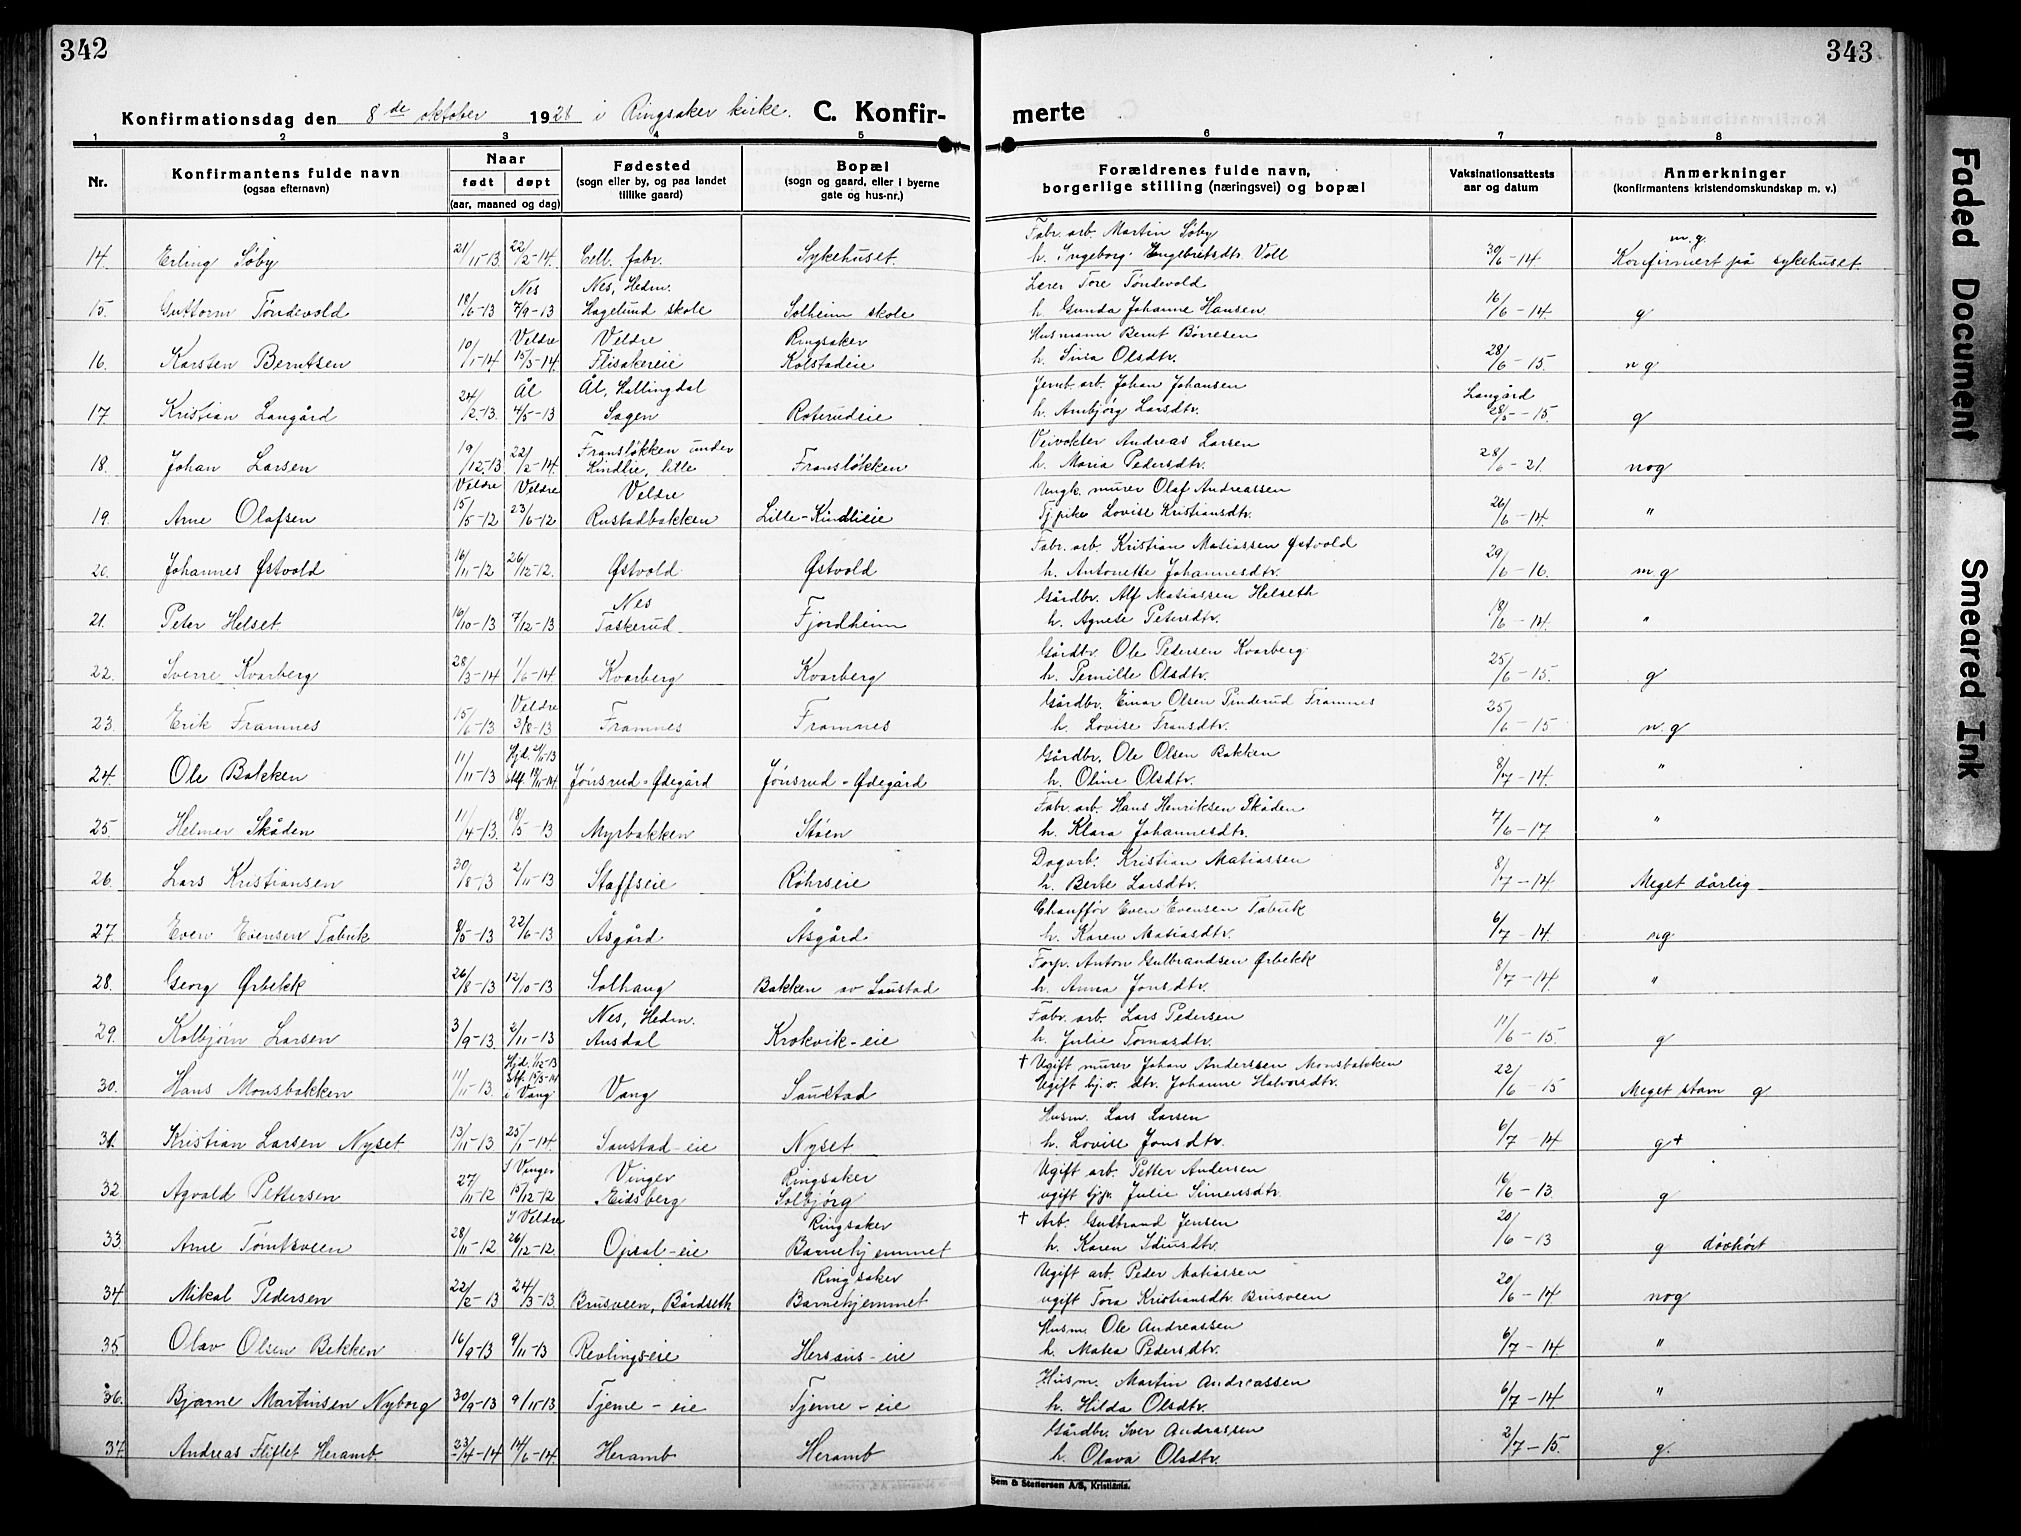 342
343
Konfirmationsdag den 8de oktober 1928 i Ringsaker kirke. C. Konfir-
merte
1 2 3 4 5 6 7 8
Nr. Konfirmantens fulde navn (ogsaa efternavn) Naar født døpt (aar, maaned og dag) Fødested (sogn eller by, og paa landet tillike gaard) Bopæl (sogn og gaard, eller i byerne gate og hus-nr.) Forældrenes fulde navn, borgerlige stilling (næringsvei) og bopæl Vaksinationsattests aar og datum Anmerkninger (konfirmantens kristendomskundskap m. v.)
14. Erling Søby 21/11-13. 22/2-14. Cell. fabr. Sykehuset. Fabr. arb. Martin Søby h. Ingeborg Engebretsdtr. Voll 30/6-14 m.g. Konfirmert på sykehuset.
15. Guttorm Tøndevold 18/6-13 Nes 7/9-13 Nes, Hedm. Hagelund skole Solheim skole Lærer Tore Tøndevold h. Gunda Johanne Hansen 16/6-14 g
16. Karsten Berntsen 10/1-14 Veldre 15/3-14 Veldre Flisakereie Ringsaker Kolstadeie Husmann Bernt Børresen h. Sina Olsdtr. 28/6-15. ng
17. Kristian Langård 24/2-13. Ål 4/5-13 Ål, Hallingdal Sagen Roterudeie Jernb. arb. Johan Johansen h. Ambjørg Larsdtr. Langård 28/5-15. g
18. Johan Larsen 19/12-13 22/2-14. Fransløkken under Kindlie, lille Fransløkken Veivokter Andreas Larsen h. Maria Pedersdtr. 28/6-21. nog
19. Arne Olafsen Veldre 15/5-12 Veldre 23/6-12 Veldre Rustadbakken Lille-Kindlieie Ungk. murer Olaf Andreassen Tj.pike Lovise Kristiansdtr. 26/6-14. "
20. Johannes Østvold 16/11-12 26/12-12. Østvold Østvold Fabr. arb. Kristian Matiassen Østvold h. Antonette Johannesdtr. 29/6-16. m.g
21. Peter Helset 16/10-13 7/12-13 Nes Taskerud Fjordheim Gårdbr. Alf Matiassen Helseth h. Agnese Petersdtr. 18/6-14. "
22. Sverre Kvarberg 28/3-14 1/6-14 Kvarberg Kvarberg Gårdbr. Ole Pedersen Kvarberg h. Pernille Olsdtr. 25/6-15. g
23. Erik Framnes 15/6-13 Veldre 3/8-13 Framnes Framnes Gårdbr. Einar Olsen Pinderud Framnes h. Lovise Fransdtr. 25/6-15 n.g
24. Ole Bakken 11/11-13 Jønsrud-Ødegård Jønsrud-Ødegård Gårdbr. Ole Olsen Bakken h. Oline Olsdtr. 8/7-14. "
25. Helmer Skåden 11/4-13. 18/5-13 Myrbakken Støen Fabr. arb. Hans Henriksen Skåden h. Klara Johannesdtr. 7/6-17 "
26. Lars Kristiansen 30/8-13 2/11-13 Staffseie Røhrseie Dagarb. Kristian Matiassen h. Berte Larsdtr. 8/7-14 Meget dårlig
27. Even Evensen Tabuk 9/5-13 22/6-13 Åsgård Åsgård Chauffør Even Evensen Tabuk h. Karen Matiasdtr. 6/7-14. ng
28. Georg Ørbekk 26/8-13 12/10-13 Solhaug Bakken av Saustad Forp. Anton Gulbrandsen Ørbekk h. Anna Jonsdtr. 8/7-14. "
29. Kolbjørn Larsen 3/9-13 2/11-13 Nes, Hedm. Ausdal Krokvik-eie Fabr. arb. Lars Pedersen h. Julie Tomasdtr. 11/6-15. g
30. Hans Monsbakken 11/11-13. Hjd. 1/12-13 Stf. 15/3-14 i Vang Vang Saustad † Ugift murer Johan Anderssen Monsbakken Ugift hj.v. dtr. Johanne Halvorsdtr. 22/6-15 Meget stam g
31. Kristian Larsen Nyset 13/11-13 25/1-14 Saustad-eie Nyset Husm. Lars Larsen h. Lovise Jonsdtr. 6/7-14 g+
32 Agvald Pettersen 27/11-12 I Vinger 15/12-12 Vinger Eidsberg Ringsaker Solbjørg Ugift arb. Petter Andersen ugift tjp. Julie Simensdtr. 16/6-13. g
33. Arne Tømtsveen 28/11-12 I Veldre 26/12-12. Opsal-eie Ringsaker Barnehjemmet † Arb. Gulbrand Jensen h. Karen Idiusdtr. 20/6-13 g døvhørt
34 Mikal Pedersen 22/2-13 24/3-13. Brusveen, Bårdseth Ringsaker Barnehjemmet Ugift arb. Peder Matiassen ugift Tora Kristiansdtr. Brusveen 20/6-14 nog
35 Olav Olsen Bekken 16/9-13 9/11-13 Revlingseie Hersaus-eie Husm. Ole Andreassen h. Matea Pedersdtr. 6/7-14. "
36. Bjarne Martinsen Nyborg 30/9-13 9/11-13 Tjerne-eie Tjerne-eie Husm. Martin Andreassen h. Hilda Olsdtr. 6/7-14 "
37. Andreas Fliflet Heramb. 23/4-14 14/6-14 Heramb Heramb Gårdbr. Iver Andrassen h. Olava Olsdtr. 2/7-15. g.
Sem & Stenersen A/S, Kristiania.
Faded Document
Smeared Ink